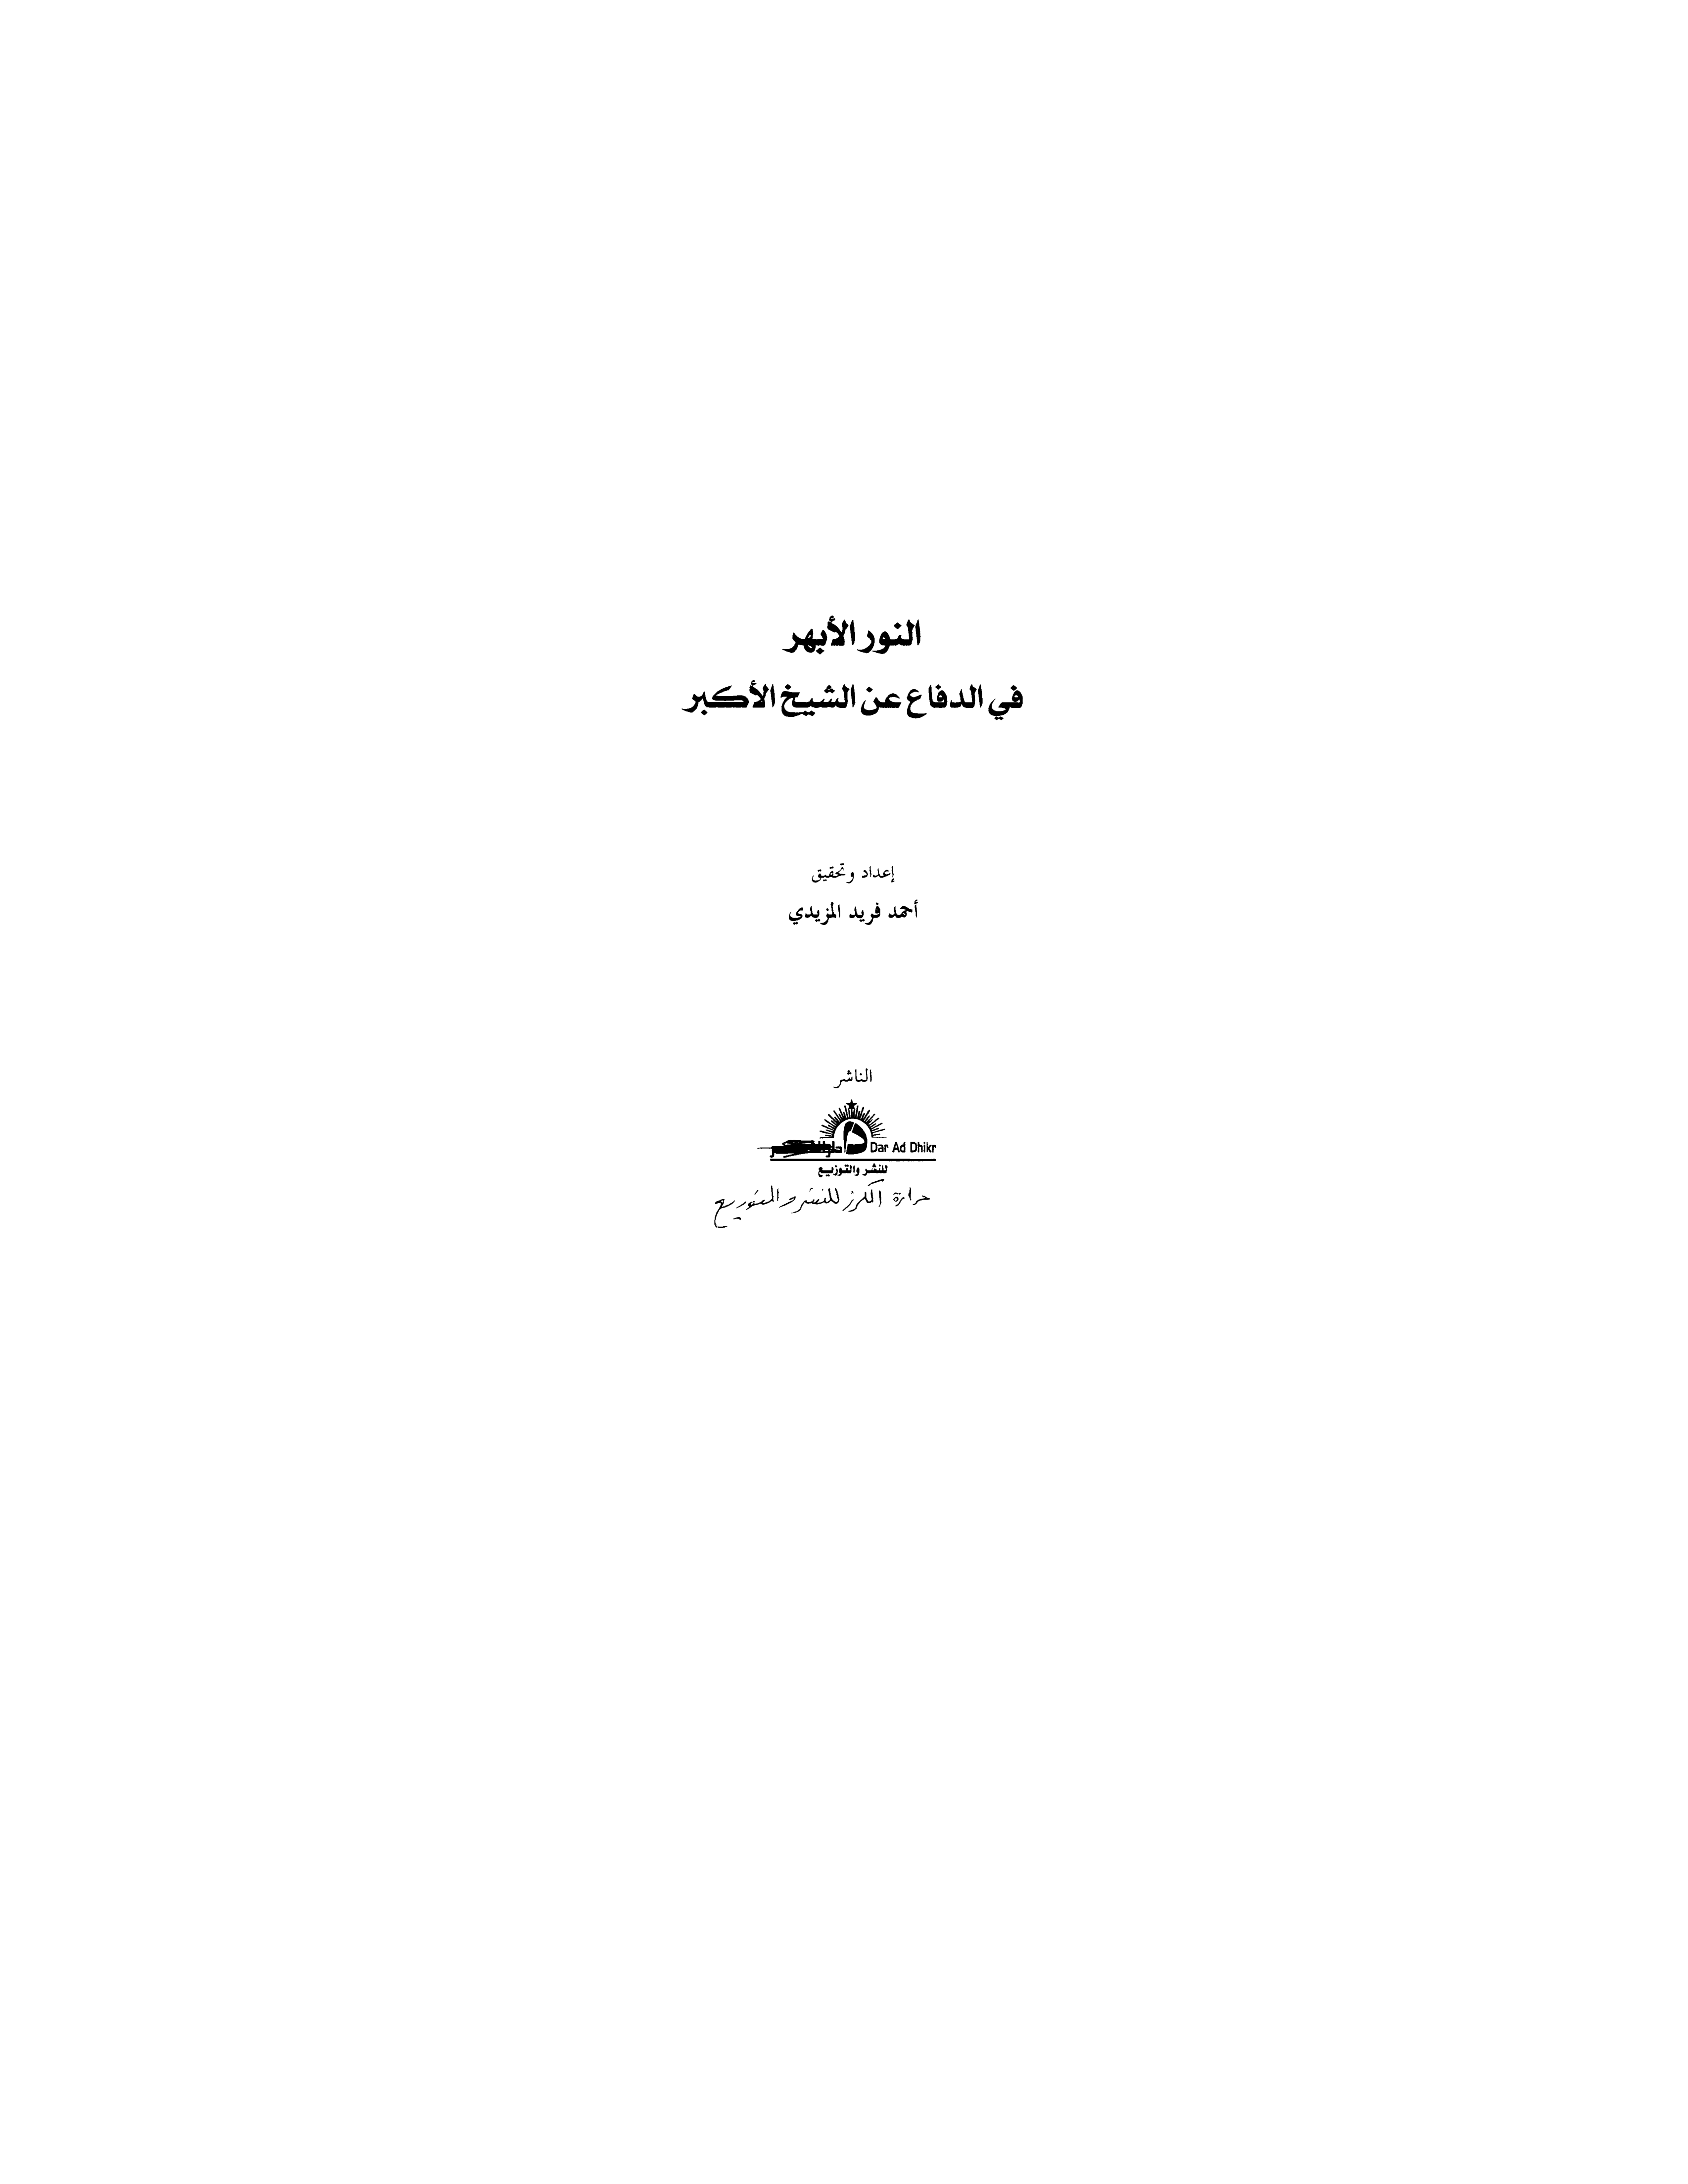 النور الأبهر
في الدفاع عن الشيخ الأكبر
إعداد وتحقيق
أحمد فريد المزيدي
الناشر
Dar Ad Dhikr
للنشر والتوزيع
للنشر والتوزيع